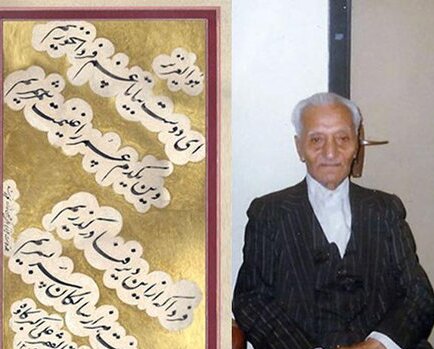 هوالعزیز
ای دوست بیا تا غم فردا نخوریم
وین یکدم عمر را غنیمت شمریم
فردا که ازین دیر فنا درگذریم
هزار سالگان سر بسریم
علی اکبر کاوه